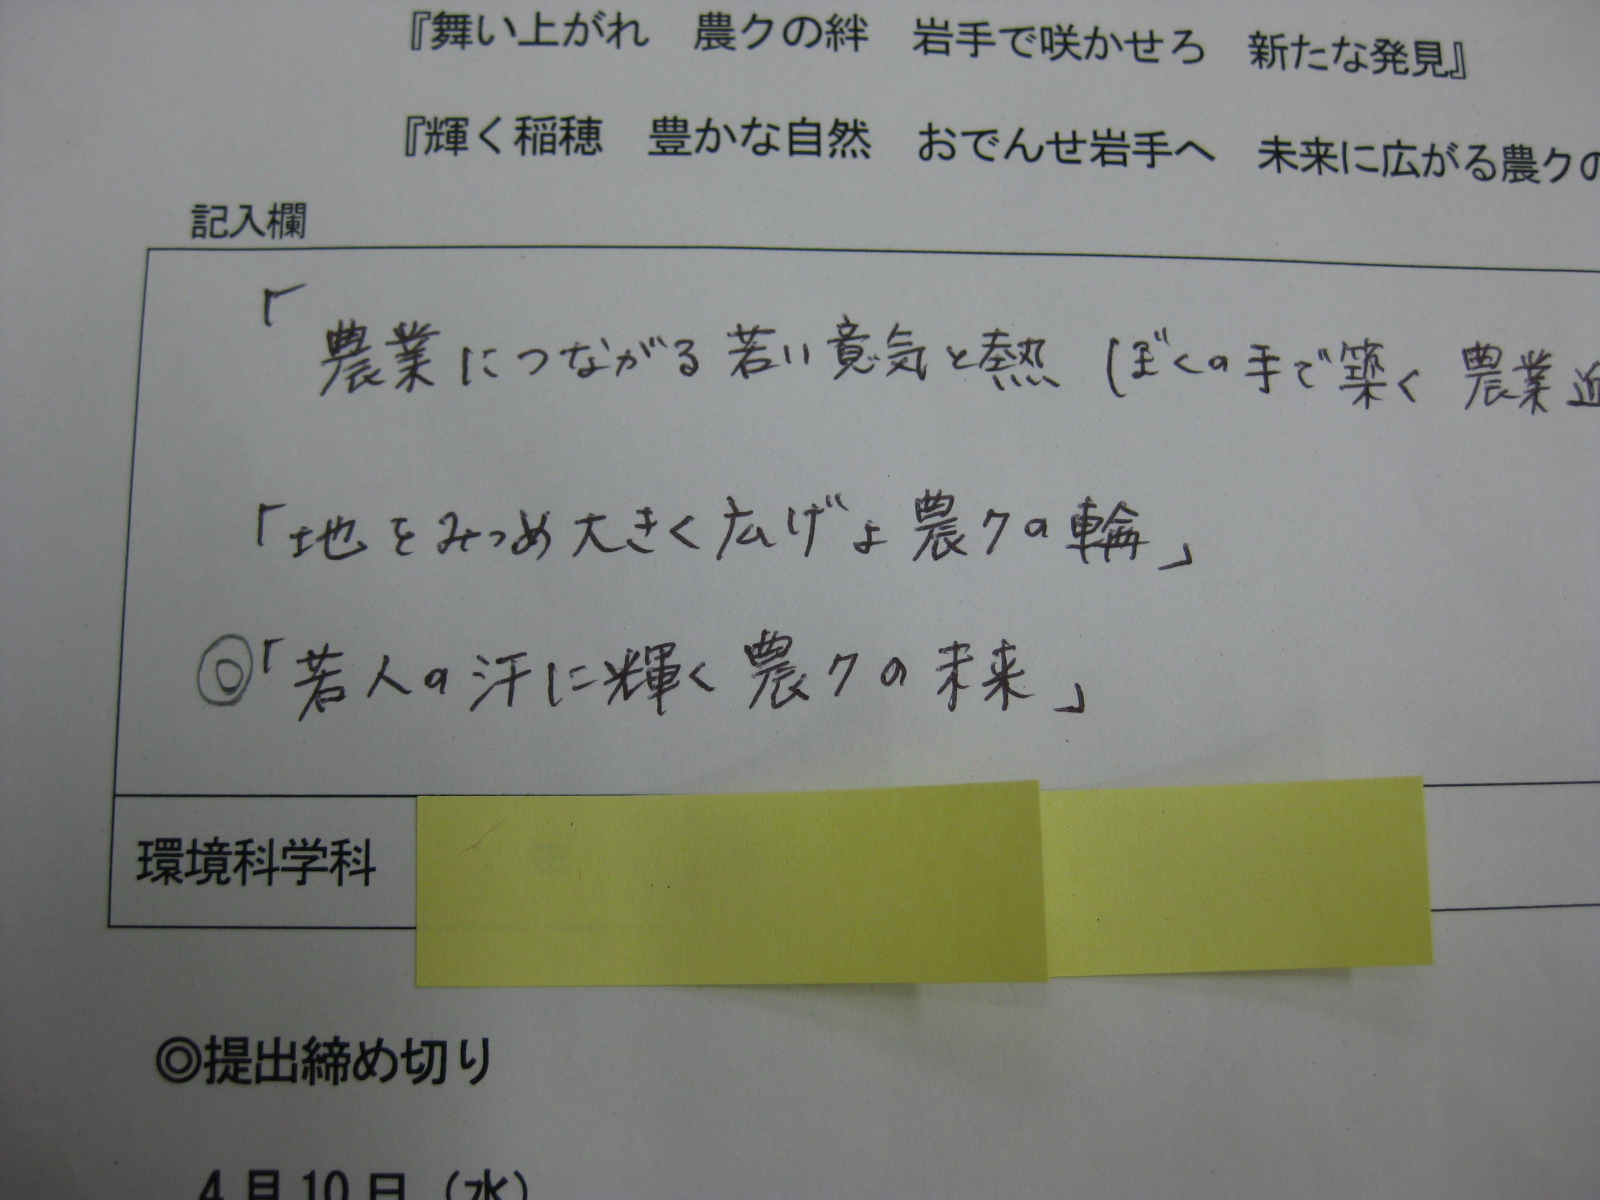 『舞い上がれ　農クの絆　岩手で咲かせろ　新たな発見』
『輝く稲穂　豊かな自然　おでんせ岩手へ　未来に広がる農クの
記入欄
「農業につながる若い意気と熱　ぼくの手で築く　農業
「地をみつめ大きく広げよ農クの輪」
◎「若人の汗に輝く農クの未来」
環境科学科
◎提出締め切り
4月10日（水）